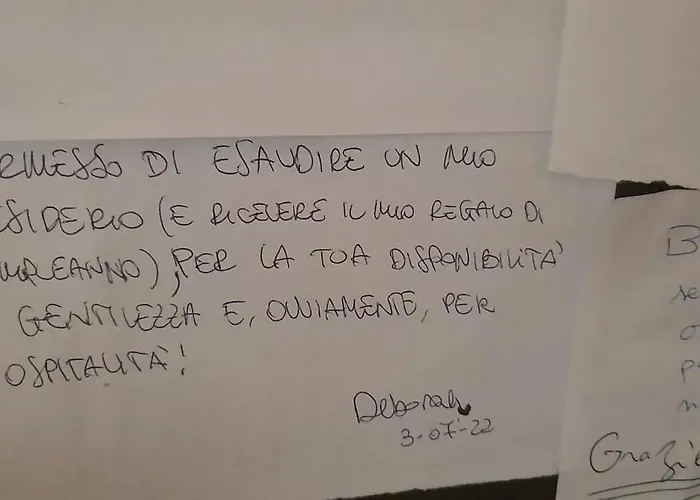 RMESSO DI ESAUDIRE UN MIO
SIDERIO (E RICEVERE IL MIO REGALO DI
MPLEANNO), PER LA TUA DISPONIBILITÀ
GENTILEZZA E, OVVIAMENTE, PER
OSPITALITÀ!
Deborah
3-07-22
B
se
o
p
n
Grazie